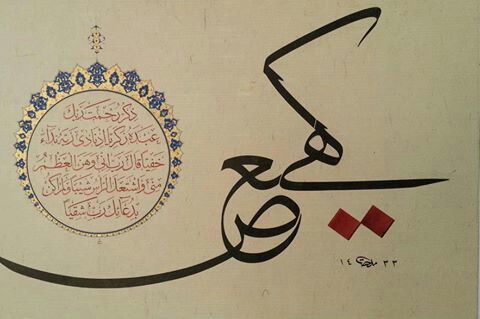 كهيعص
ذكر رحمت ربك
عبده زكريا اذ نادى ربه نداء
خفيا قال رب اني وهن العظم
مني واشتعل الراس شيبا ولم اكن
بدعائك رب شقيا
١٤٣٣